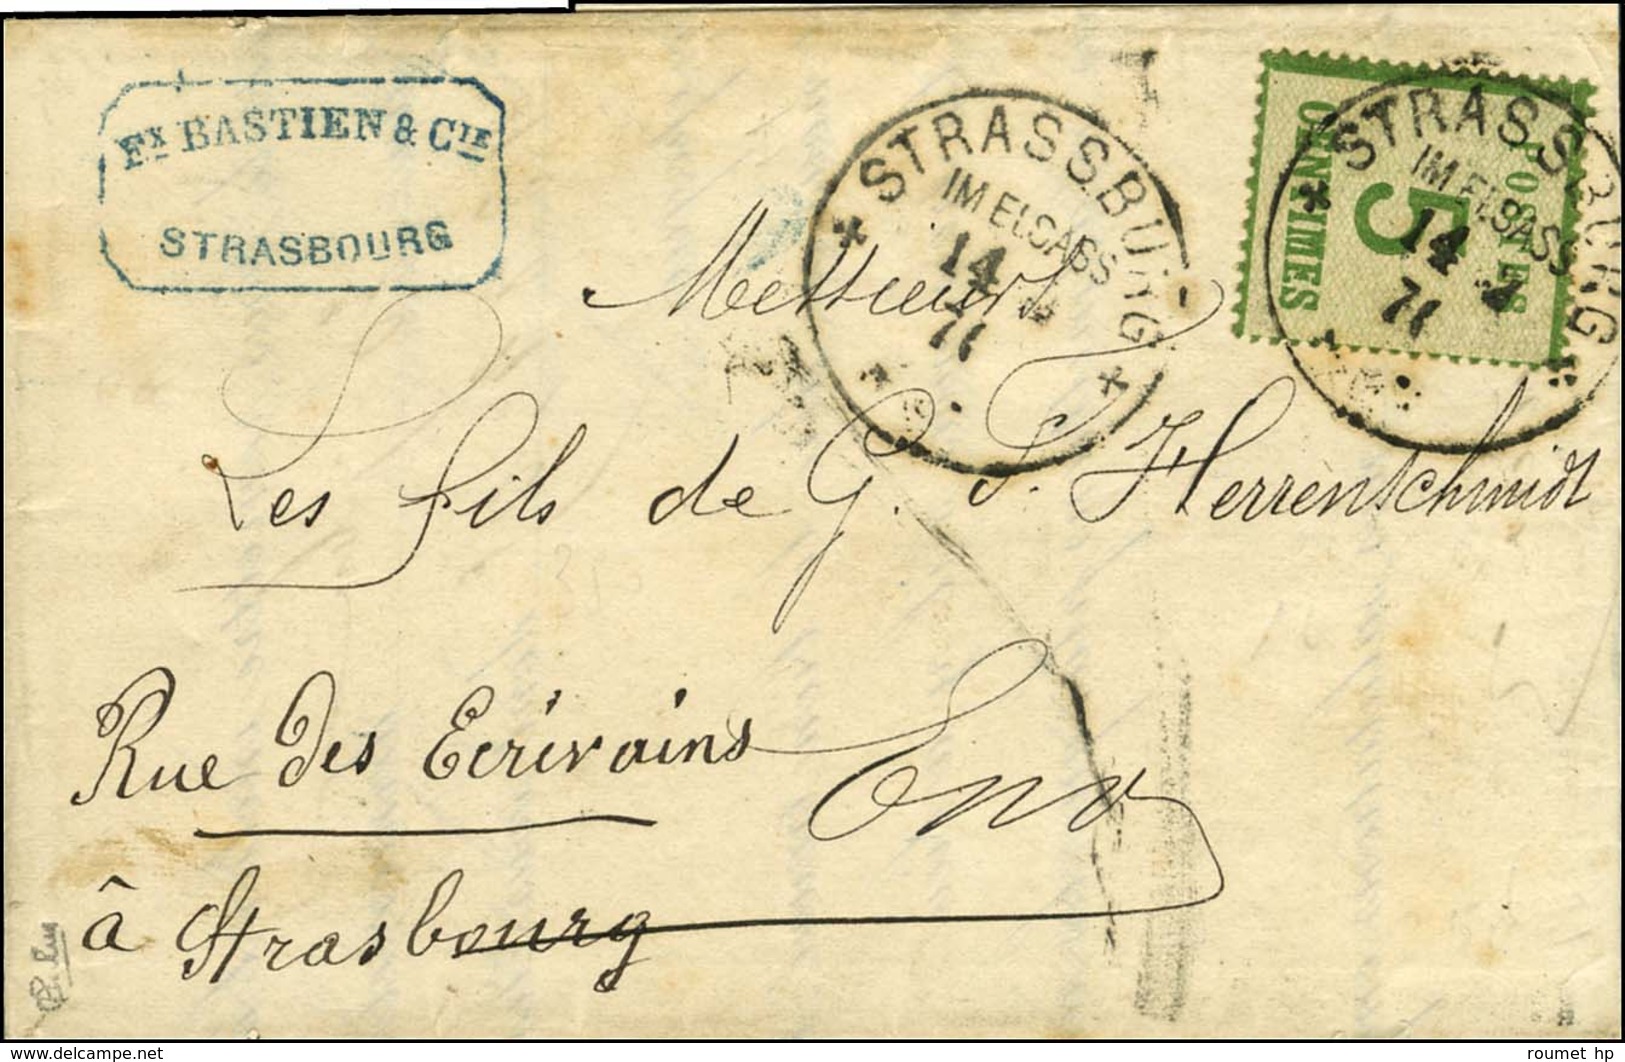 Fx BASTIEN & CIE
STRASBOURG
STRASSBURG
IM ELSASS
14
71
POSTES
5
CENTIMES
STRASSBURG
IM ELSASS
14
71
Messieurs
Les fils de G. S. Herrenschmidt
Rue des Ecrivains
Env
à Strasbourg
www.delcampe.net
roumet hp